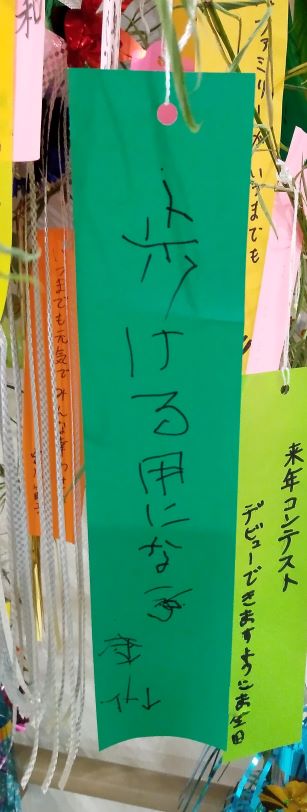 ファミリーがいつまでも
来年コンテスト
デビューできますように
歩ける用にな
いつまでも元気でみんな幸せ